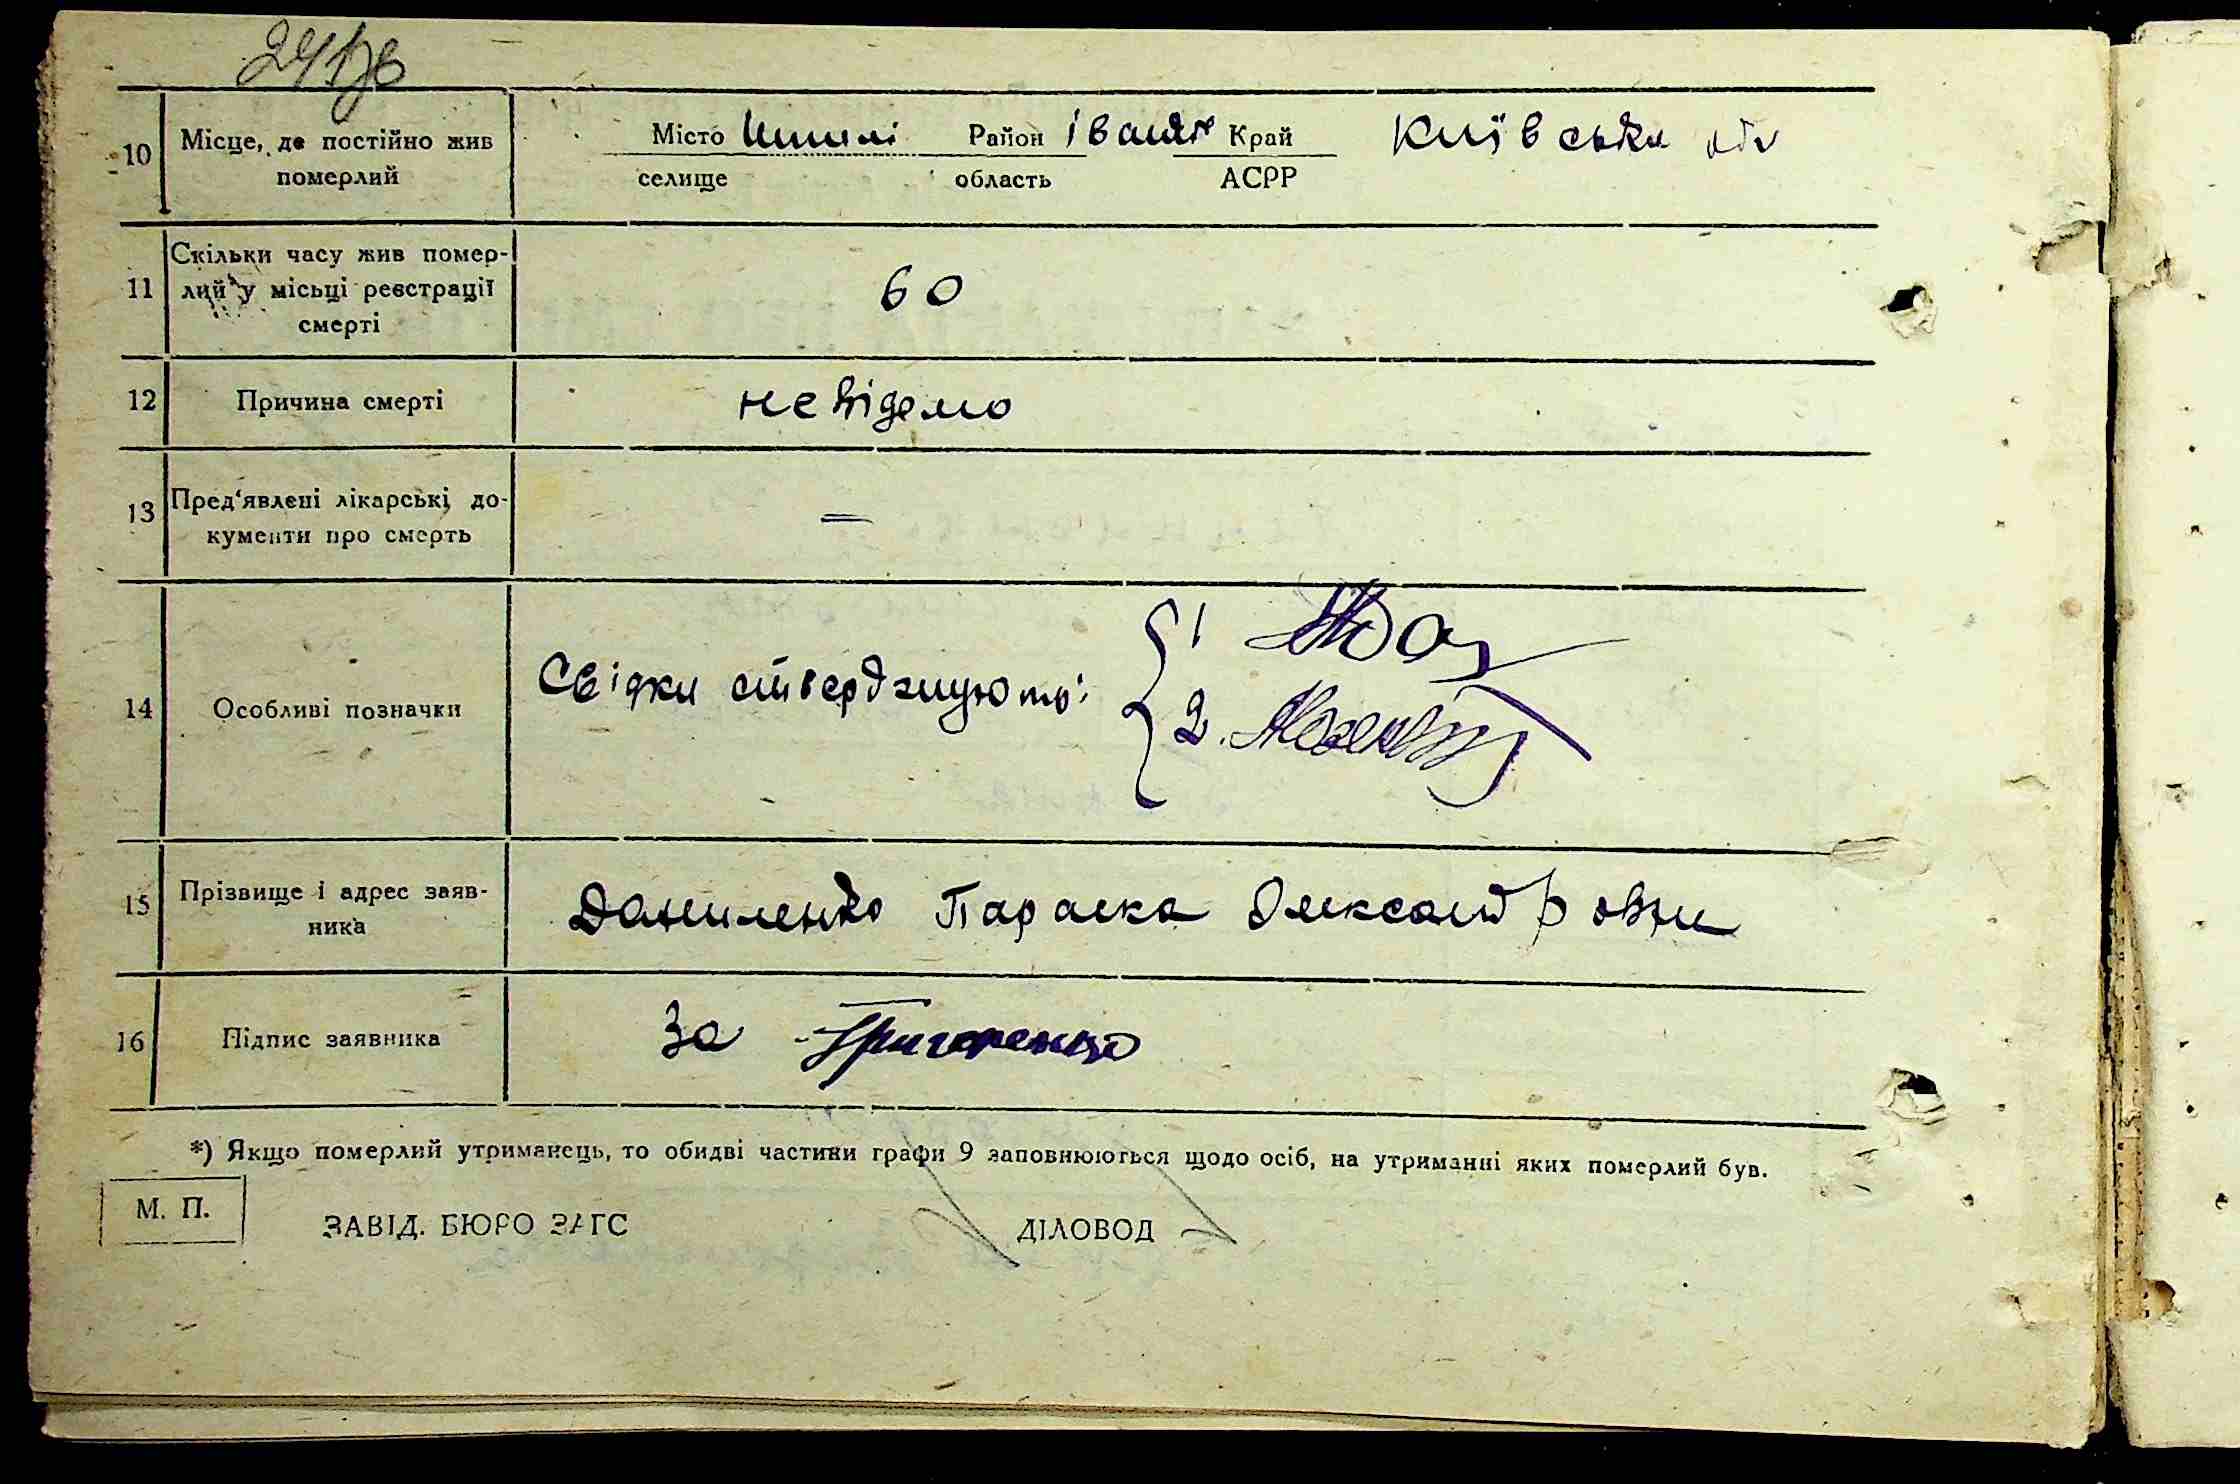 10 Місце, де постійно жив померлий
Місто Район Іванк Край Київська обл
селище область АСРР
11 Скільки часу жив помер-
лий у місьці реєстрації
смерті
60
12 Причина смерті
невідомо
13 Пред'явлені лікарські до-
кументи про смерть
=
14 Особливі позначки
Свідки стверджують:
1
2.
15 Прізвище і адрес заяв-
ника
Даниленко Параска Олександровни
16 Підпис заявника
За Григоренко
*) Якщо померлий утриманець, то обидві частини графи 9 заповнюються щодо осіб, на утриманні яких померлий був.
М. П.
ЗАВІД. БЮРО ЗАГС ДІЛОВОД